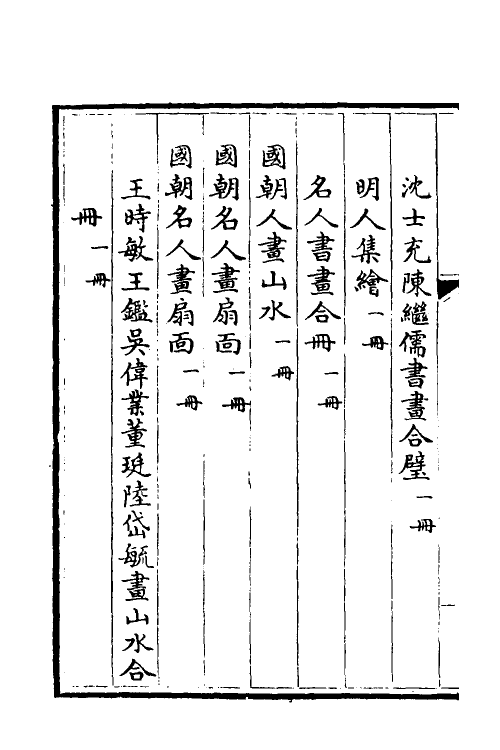 沈士充陳繼儒書畫合璧一冊
明人集繪一冊
名人書畫合冊一冊
國朝人畫山水一冊
國朝名人畫扇面一冊
國朝名人畫扇面一冊
王時敏王鑑吳偉業董珽陸岱毓畫山水合
冊一冊